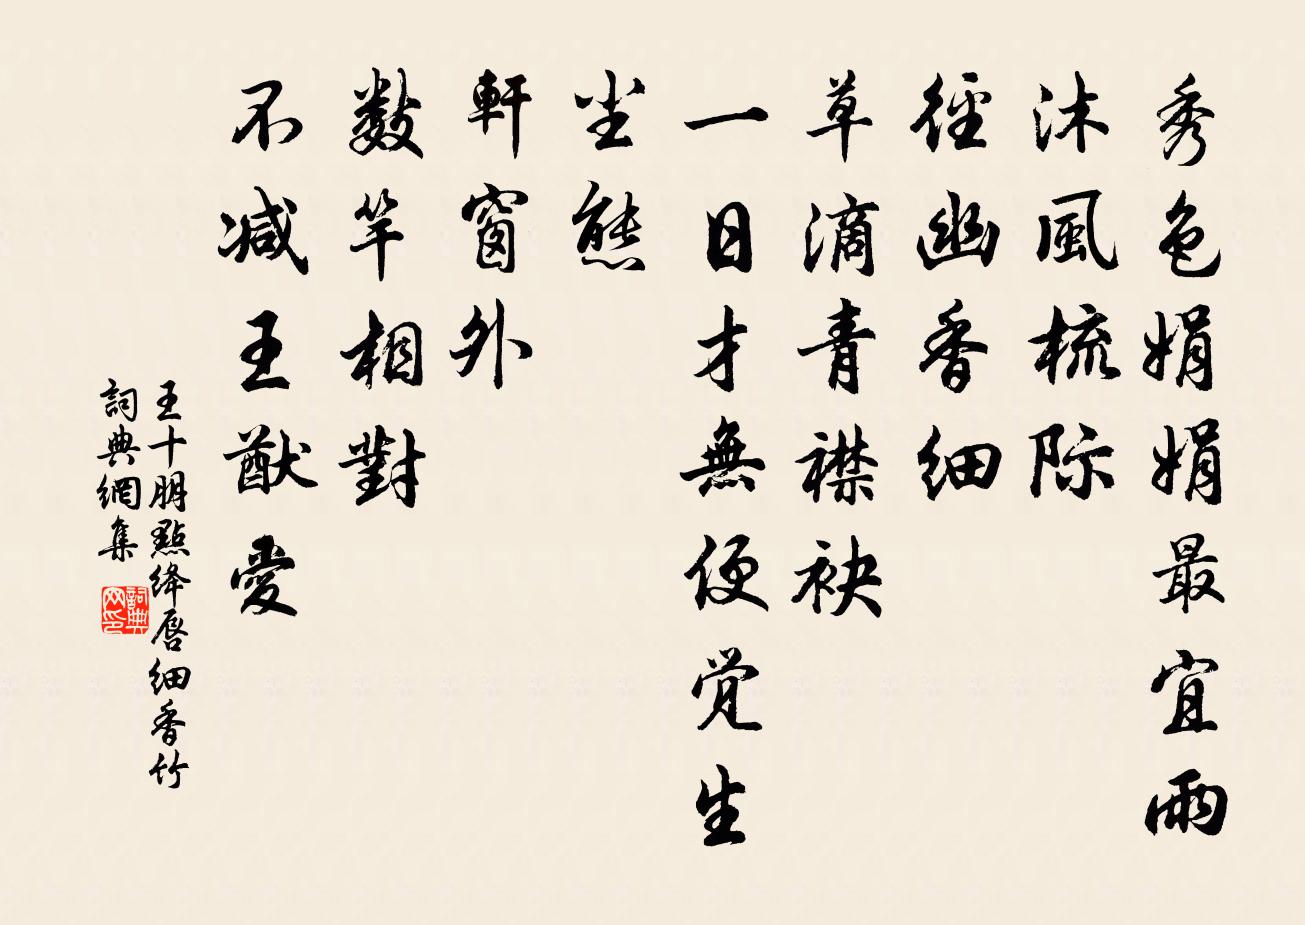 秀色娟娟最宜雨
沐風梳际
徑幽香细
草滴青襟袂
一日才無便觉生
尘態
軒窗外
數竿相對
不减王猷愛
王十朋點绛唇细香竹
詞典網集
詞典网印